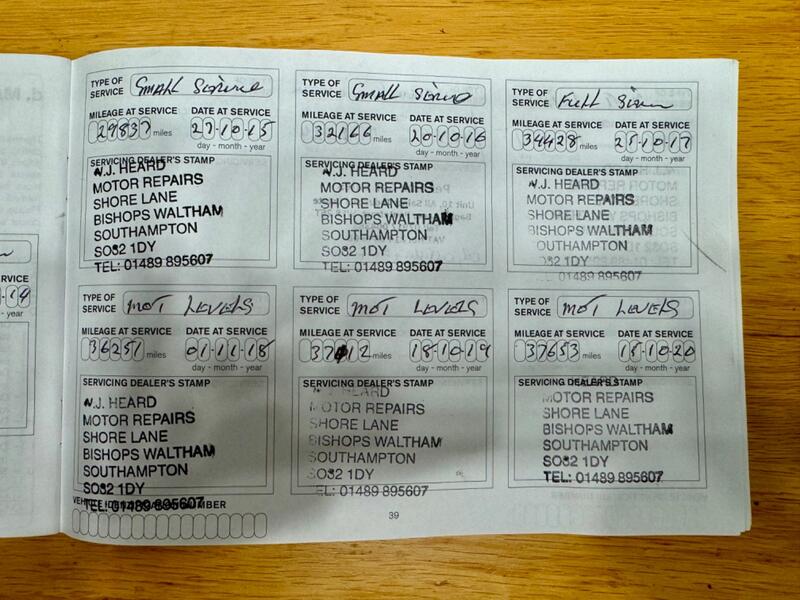 TYPE OF SERVICE Small Service
MILEAGE AT SERVICE DATE AT SERVICE
29837 miles 27-10-15
day - month - year
SERVICING DEALER'S STAMP
N.J. HEARD
MOTOR REPAIRS
SHORE LANE
BISHOPS WALTHAM
SOUTHAMPTON
SO32 1DY
TEL: 01489 895607
TYPE OF SERVICE Small Service
MILEAGE AT SERVICE DATE AT SERVICE
32166 miles 20-10-16
day - month - year
SERVICING DEALER'S STAMP
N.J. HEARD
MOTOR REPAIRS
SHORE LANE
BISHOPS WALTHAM
SOUTHAMPTON
SO32 1DY
TEL: 01489 895607
TYPE OF SERVICE Full Service
MILEAGE AT SERVICE DATE AT SERVICE
34428 miles 25-10-17
day - month - year
SERVICING DEALER'S STAMP
N.J. HEARD
MOTOR REPAIRS
SHORE LANE
BISHOPS WALTHAM
SOUTHAMPTON
SO32 1DY
TEL: 01489 895607
TYPE OF SERVICE MOT LEVELS
MILEAGE AT SERVICE DATE AT SERVICE
36251 miles 01-11-18
day - month - year
SERVICING DEALER'S STAMP
N.J. HEARD
MOTOR REPAIRS
SHORE LANE
BISHOPS WALTHAM
SOUTHAMPTON
SO32 1DY
TEL: 01489 895607
TYPE OF SERVICE MOT LEVELS
MILEAGE AT SERVICE DATE AT SERVICE
miles 18-10-19
day - month - year
SERVICING DEALER'S STAMP
N.J. HEARD
MOTOR REPAIRS
SHORE LANE
BISHOPS WALTHAM
SOUTHAMPTON
SO32 1DY
TEL: 01489 895607
TYPE OF SERVICE MOT LEVELS
MILEAGE AT SERVICE DATE AT SERVICE
37653 miles 15-10-20
day - month - year
SERVICING DEALER'S STAMP
MOTOR REPAIRS
SHORE LANE
BISHOPS WALTHAM
SOUTHAMPTON
SO32 1DY
TEL: 01489 895607
39